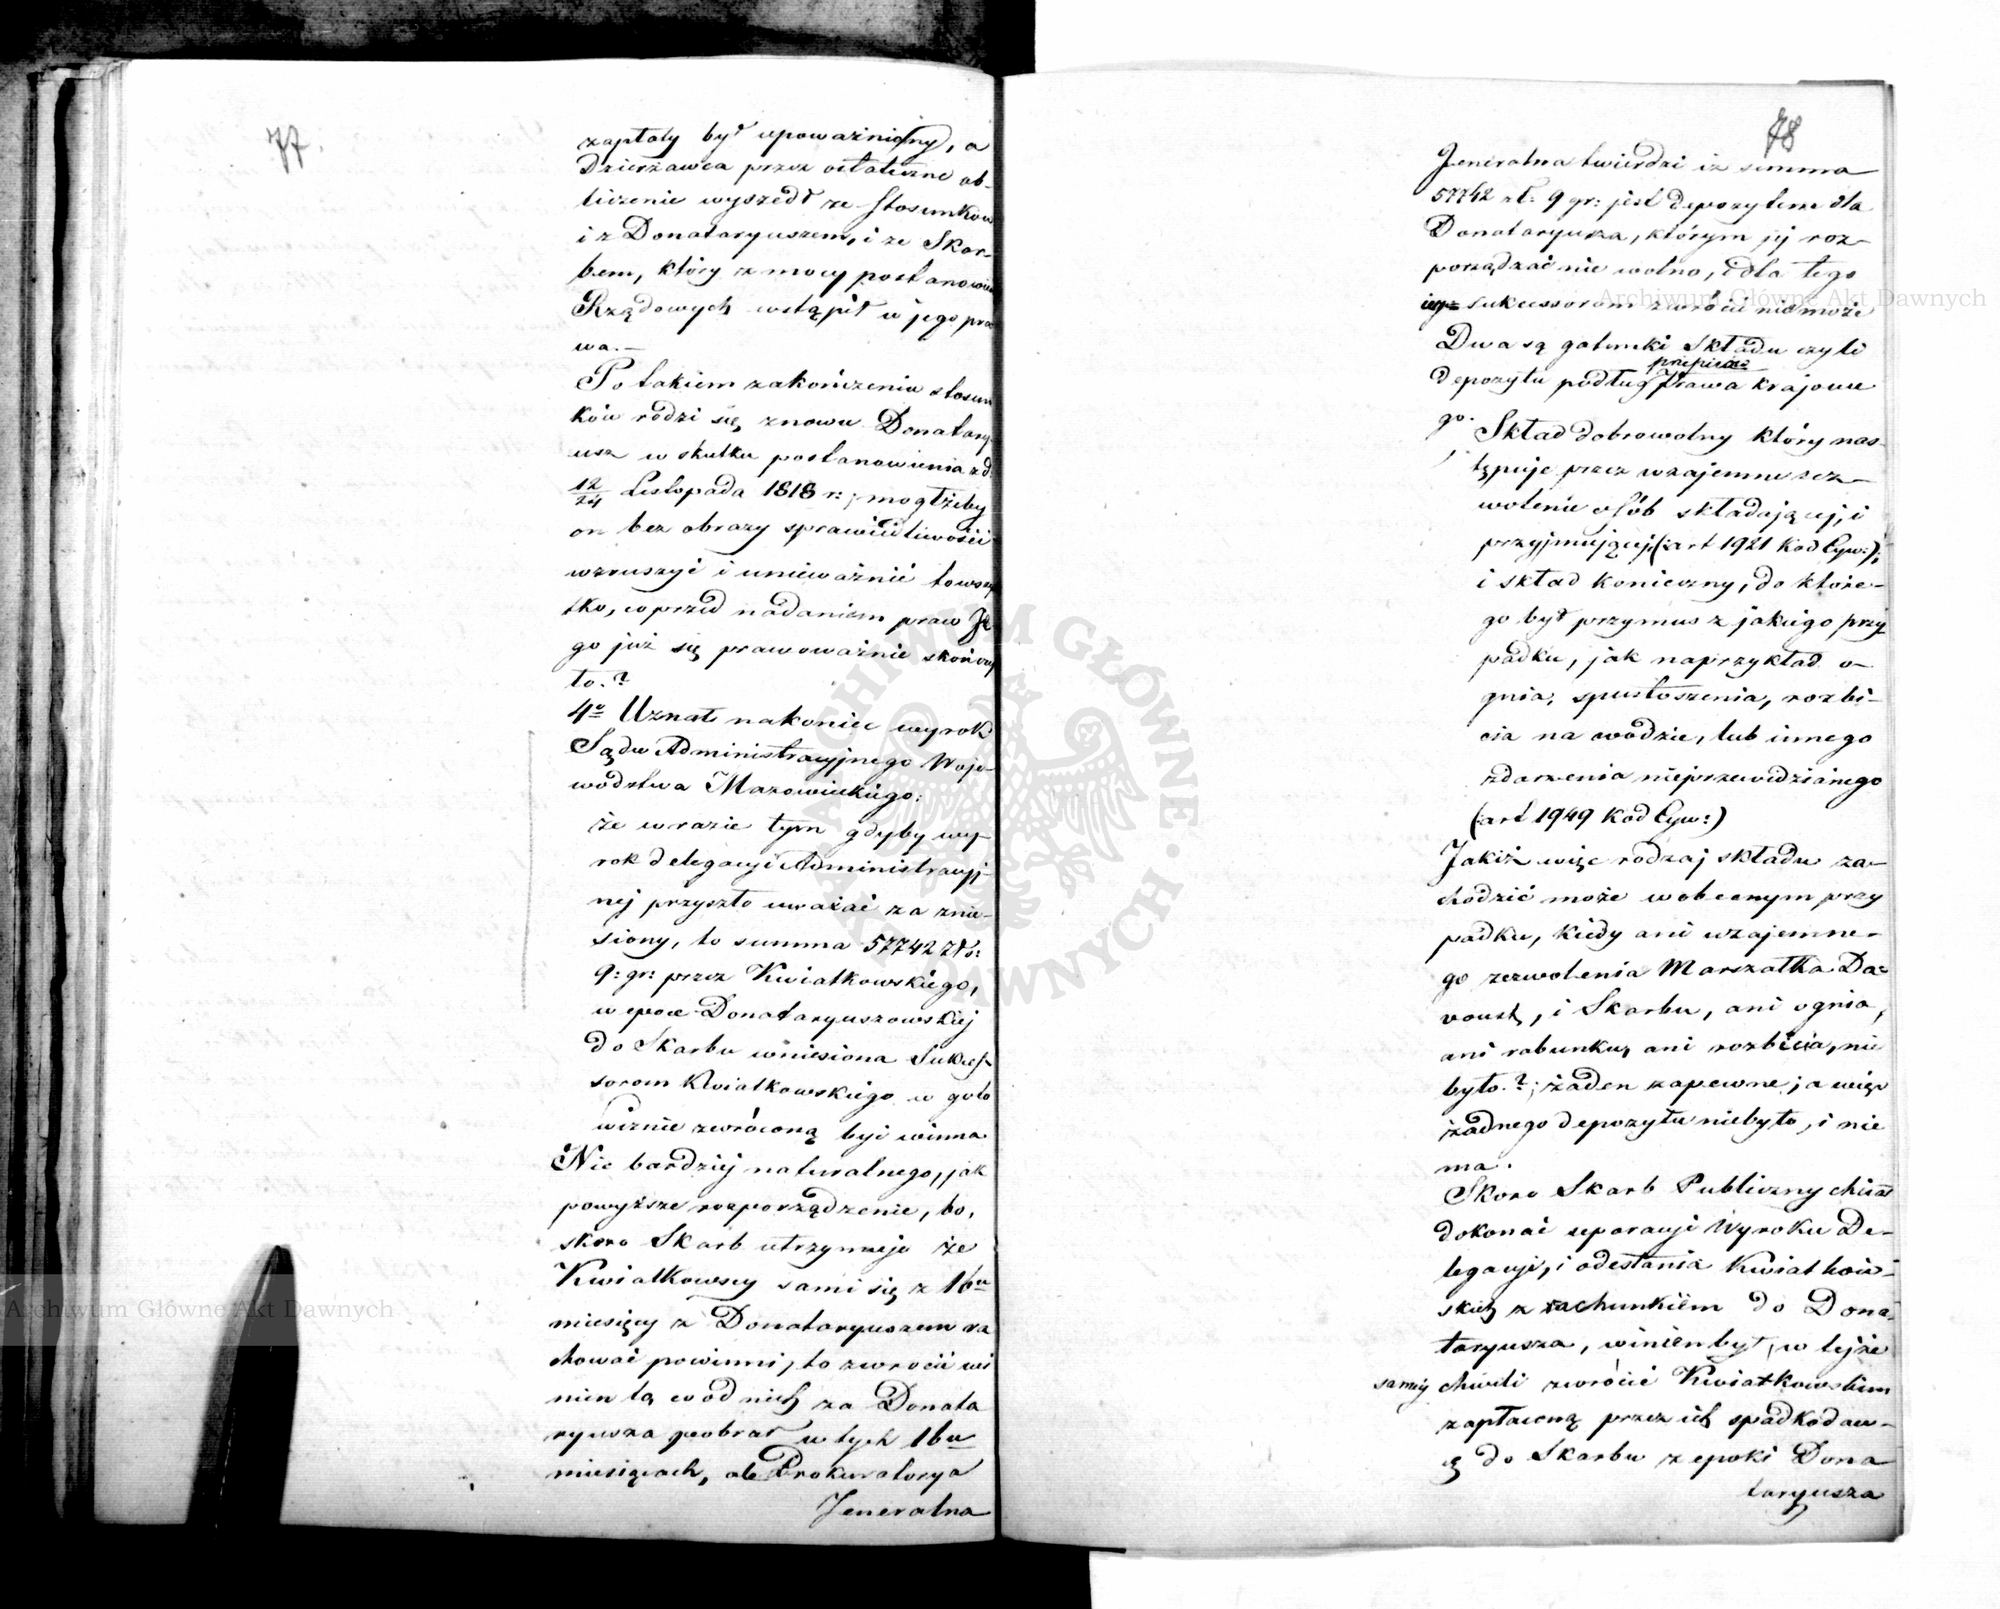 77.
zapłaty był upoważniony, a
Dzierżawca przez ostateczne ob-
liczenie wyszedł ze stosunków
i z Donataryuszem, i ze Skar-
bem, który z mocy postanowień
Rządowych wstąpił w jego pra
wa.—
Po takiem zakończeniu stosun
ków rodzi się znowu Donatary-
usz w skutku postanowienia z d:
12/24 Listopada 1818 r:; mógłżeby
on bez obrazy sprawiedliwości
wzruszyć i unieważnić to wszy
tko, co przed nadaniem praw Je
go już się prawoważnie skończy
ło.?
4º Uznał nakoniec wyrok
Sądu Administracyjnego Woje-
wództwa Mazowieckiego:
że w razie tym gdyby wy-
rok delegacyi Administracyj-
nej przyszło uważać za znie-
siony, to summa 57742 Złp:
9: gr: przez Kwiatkowskiego,
w epoce Donataryuszowskiej
do Skarbu wniesiona Sukces-
sorom Kwiatkowskiego w goto
wiznie zwróconą być winna
Nic bardziej naturalnego, jak
powyższe rozporządzenie, bo,
skoro Skarb utrzymuje że
Kwiatkowscy sami się z 16u
miesięcy z Donataryuszem ra
chować powinni, to zwrócić wi
nien to, co od nich za Donata
ryusza pobrał w tych 16u
miesiącach, ale Prokuratorya
Jeneralna
78
Jeneralna twierdzi iż summa
57742 zł: 9 gr: jest depozytem dla
Donataryusza, którym jej roz-
porządzać nie wolno, i dla tego
sukcessorom zwrócić nie może
Dwa są gatunki składu czyli
przepisów
depozytu podług prawa krajowe
go.
Skład dobrowolny który nas-
tępuje przez wzajemne zez-
wolenie osób składającej, i
przyjmującej (:art 1921 Kod Cyw:);
i skład konieczny, do które-
go był przymus z jakiego przy
padku, jak naprzykład o-
gnia, spustoszenia, rozbi-
cia na wodzie, lub innego
zdarzenia nieprzewidzianego
(:art 1949 Kod Cyw:)
Jakiż więc rodzaj składu za-
chodzić może w obecnym przy
padku, kiedy ani wzajemne-
go zezwolenia Marszałka Da-
voust, i Skarbu, ani ognia,
ani rabunku, ani rozbicia, nie
było.?; żaden zapewne; a więc
żadnego depozytu niebyło, i nie
ma.
Skoro Skarb Publiczny chciał
dokonać operacyi Wyroku De-
legacyi, i odesłania Kwiatkow-
skich z rachunkiem do Dona-
taryusza, winien był, w tejże
samej chwili zwrócić Kwiatkowskim
zapłaconą przez ich spadkodaw-
cę do Skarbu z epoki Dona
taryusza
Archiwum Główne Akt Dawnych
Archiwum Główne Akt Dawnych
ARCHIWUM GŁÓWNE AKT DAWNYCH